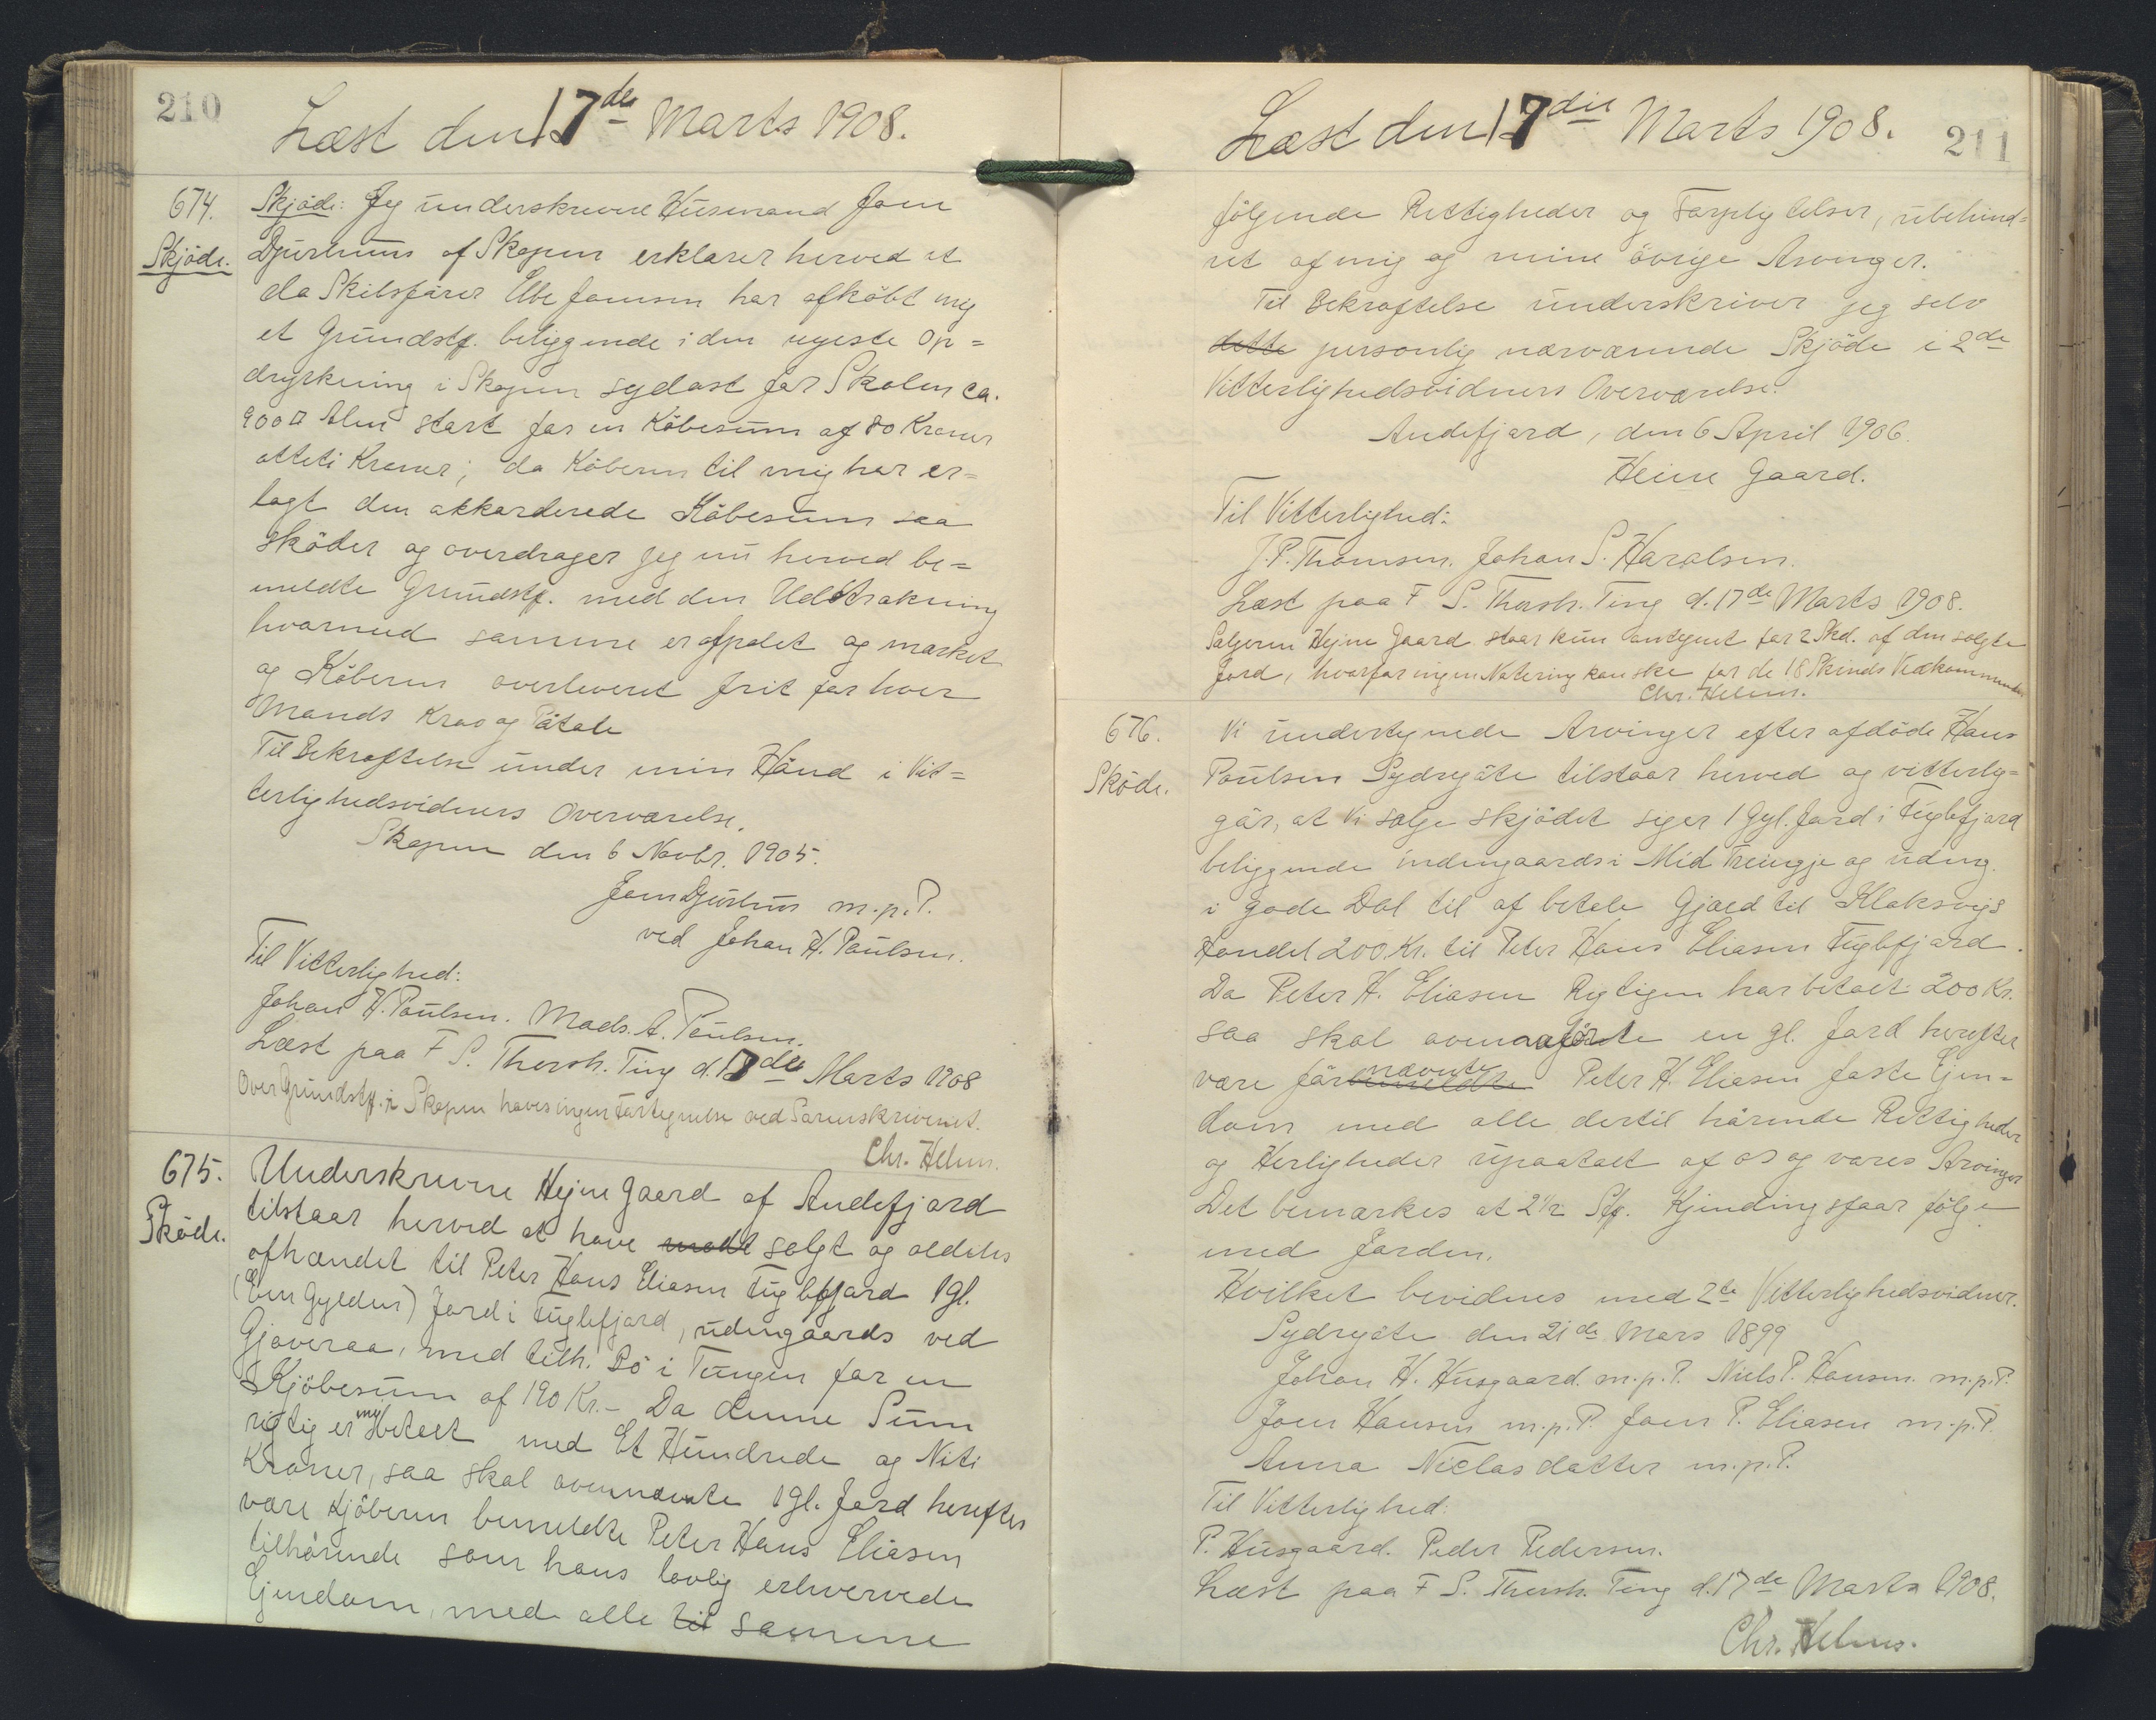 210
Læst den 17de Marts 1908.
674.
Skjöde.
Skjöde: Jeg underskrevne Husmand Joen
Djurhuus af Skopun erklærer herved at
da Skibsförer Ebe Joensen har afköbt mig
et Grundstk. beliggende i den nyeste Op=
dyrkning i Skopun sydost for Skolen ca.
900 □ Alen stort for en Köbesum af 80 Kroner
otteti Kroner; da Köberen til mig har er=
lagt den akkorderede Köbesum saa
sköder og overdrager jeg nu herved be=
meldte Grundstk. med den Udstrækning
hvormed samme er afpælet og mærket
og Köberen overleveret frit for hver
Mands Krav og Tåtale
Til Bekræftelse under min Hånd i Vit=
terlighedsvidners Overværelse.
Skopun den 6 Novbr. 1905.
Joen Djurhuus m.p.P.
ved Johan H. Poulsen.
Til Vitterlighed:
Johan H. Poulsen. Mads. A. Poulsen.
Læst paa F S. Thorsh. Ting d. 17de Marts 1908
Over Grundstk. i Skopun haves ingen Fortegnelse ved Sorenskriveriet.
Chr. Helms.
675.
Sköde.
Underskrevne Hejne Gaard af Andefjord
tilstaar herved at have solgt og aldeles
afhændet til Peter Hans Eliasen Fuglefjord 1 gl.
(Een Gylden) Jord i Fuglefjord, udengaards ved
Gjøveraa, med tilh. Bö i Tungen for en
Kjöbesum af 190 Kr.- Da denne Sum
rigtig er mig betalt med Et Hundrede og Niti
Kroner, saa skal ovennævnte 1 gl. Jord herefter
være Kjöberen bemeldte Peter Hans Eliasen
tilhörende som hans lovlig erhvervede
Ejendom, med alle til samme
Læst den 17die Marts 1908.
211
fölgende Rettigheder og Forpligtelser, ubehind=
ret af mig og mine övrige Arvinger.
Til Bekræftelse underskriver jeg selv
dette personlig nærværende Skjöde i 2de
Vitterlighedsvidners Overværelse.
Andefjord, den 6 April 1906.
Heine Gaard.
Til Vitterlighed:
J. P. Thomsen. Johan S. Haralsen.
Læst paa F S. Thorsh. Ting d. 17de Marts 1908.
Sælgeren Hejne Gaard staar kun antegnet for 2 Skd. af den solgte
Jord, hvorfor ingen Notering kan ske for de 18 Skinds Vedkommende
Chr. Helms.
676.
Sköde.
Vi undertegnede Arvinger efter afdöde Hans
Poulsen Sydregöte tilstaar herved og vitterlig=
gör, at Vi sælge skjödet siger 1 Gyl. Jord i Fuglefjord
beliggende indengaards i Mid Trengje og udeng.
i gode Dal til af betale Gjæld til Klaksvigs
Handel 200 Kr. til Peter Hans Eliasen Fuglefjord.
Da Peter H. Eliasen Rigtigen har betalt 200 Kr.
saa skal ovenanförte en gl. Jord herefter
være förnævnte Peter H. Eliasen faste Ejen=
dom med alle dertil hörende Rettigheder
og Herligheder upaatalt af os og vores Arvinger
Det bemærkes at 2½ Stk. Kjendingsfaar fölge
med Jorden.
Hvilket bevidnes med 2te Vitterlighedsvidner.
Sydregöte den 21de Mars 1899
Johan H. Husgaard. m.p.P. Niels P. Hansen. m.p.P.
Joen Hansen m.p.P. Joen P. Eliasen m.p.P.
Anna Niclasdatter m.p.P.
Til Vitterlighed:
P. Husgaard. Peder Pedersen.
Læst paa F S. Thorsh. Ting d. 17de Marts 1908.
Chr. Helms.